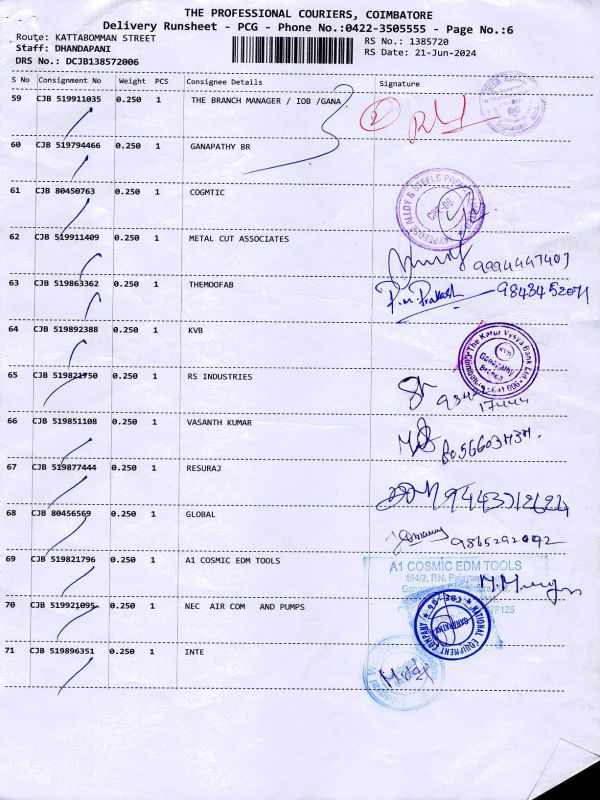 THE PROFESSIONAL COURIERS, COIMBATORE
Delivery Runsheet - PCG - Phone No.:0422-3505555 - Page No.:6
Route: KATTABOMMAN STREET RS No.: 1385720
Staff: DHANDAPANI RS Date: 21-Jun-2024
DRS No.: DCJB138572006
S No Consignment No Weight PCS Consignee Details Signature
59 CJB 519911035 0.250 1 THE BRANCH MANAGER / IOB /GANA
2
60 CJB 519794466 0.250 1 GANAPATHY BR
61 CJB 80450763 0.250 1 COGMTIC
ALLOY & STEELS
CBE-06
62 CJB 519911409 0.250 1 METAL CUT ASSOCIATES
9994447407
63 CJB 519863362 0.250 1 THEMOOFAB
P.M. Prakash 9843452071
64 CJB 519892388 0.250 1 KVB
The Karur Vysya Bank Ltd.
KVB
Ganapathy
Branch
65 CJB 519821750 0.250 1 RS INDUSTRIES
17444
66 CJB 519851108 0.250 1 VASANTH KUMAR
67 CJB 519877444 0.250 1 RESURAJ
68 CJB 80456569 0.250 1 GLOBAL
69 CJB 519821796 0.250 1 A1 COSMIC EDM TOOLS
A1 COSMIC EDM TOOLS
164/2, P.N.
70 CJB 519921095 0.250 1 NEC AIR COM AND PUMPS
NATIONAL EQUIPMENT COMPANY
71 CJB 519896351 0.250 1 INTE